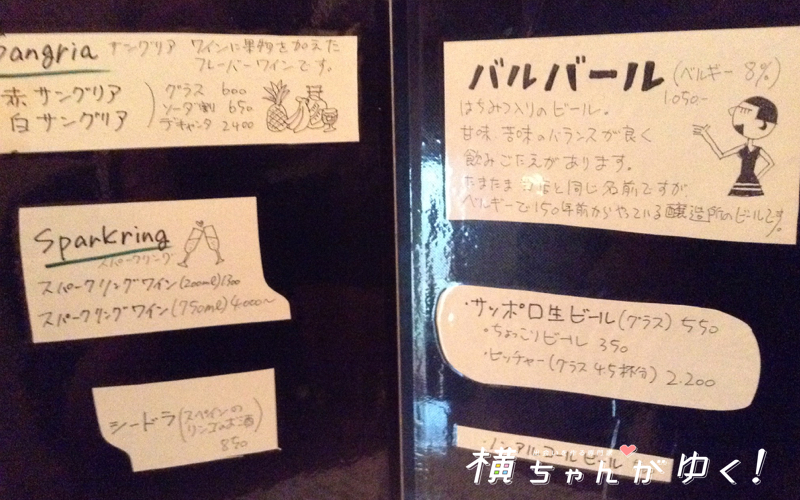 Sangria サングリア ワインに果物を加えた
フレーバーワインです。
赤 サングリア
白 サングリア
グラス 600
ソーダ割 650
デキャンタ 2400
Sparkring
スパークリング
スパークリングワイン(200ml)1300
スパークリングワイン(750ml)4000〜
シードラ(スペインの
リンゴのお酒)
850
バルバール(ベルギー 8%)
1050-
はちみつ入りのビール。
甘味 苦味のバランスが良く
飲みごたえがあります。
たまたま 当店と同じ名前ですが
ベルギーで150年前からやっている醸造所のビールです。
・サッポロ生ビール(グラス) 550
・ちょっこりビール 350
・ピッチャー(グラス4.5杯分) 2.200
・ノンアルコールビール
横ちゃんがゆく!